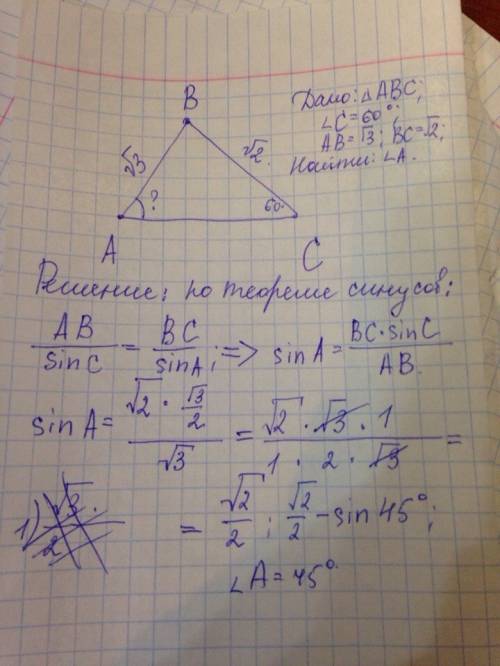 B
Дано: △ABC;
∠C = 60°;
AB = √3; BC = √2;
Найти: ∠A.
√3
√2.
?
60°
A
C
Решение: по теореме синусов:
AB/sinC = BC/sinA; => sinA = BC·sinC/AB.
sinA = (√2 · √3/2)/√3 = (√2 · √3 · 1)/(1 · 2 · √3) =
1) √3. / 2
= √2/2 ; √2/2 - sin 45°;
∠A = 45°